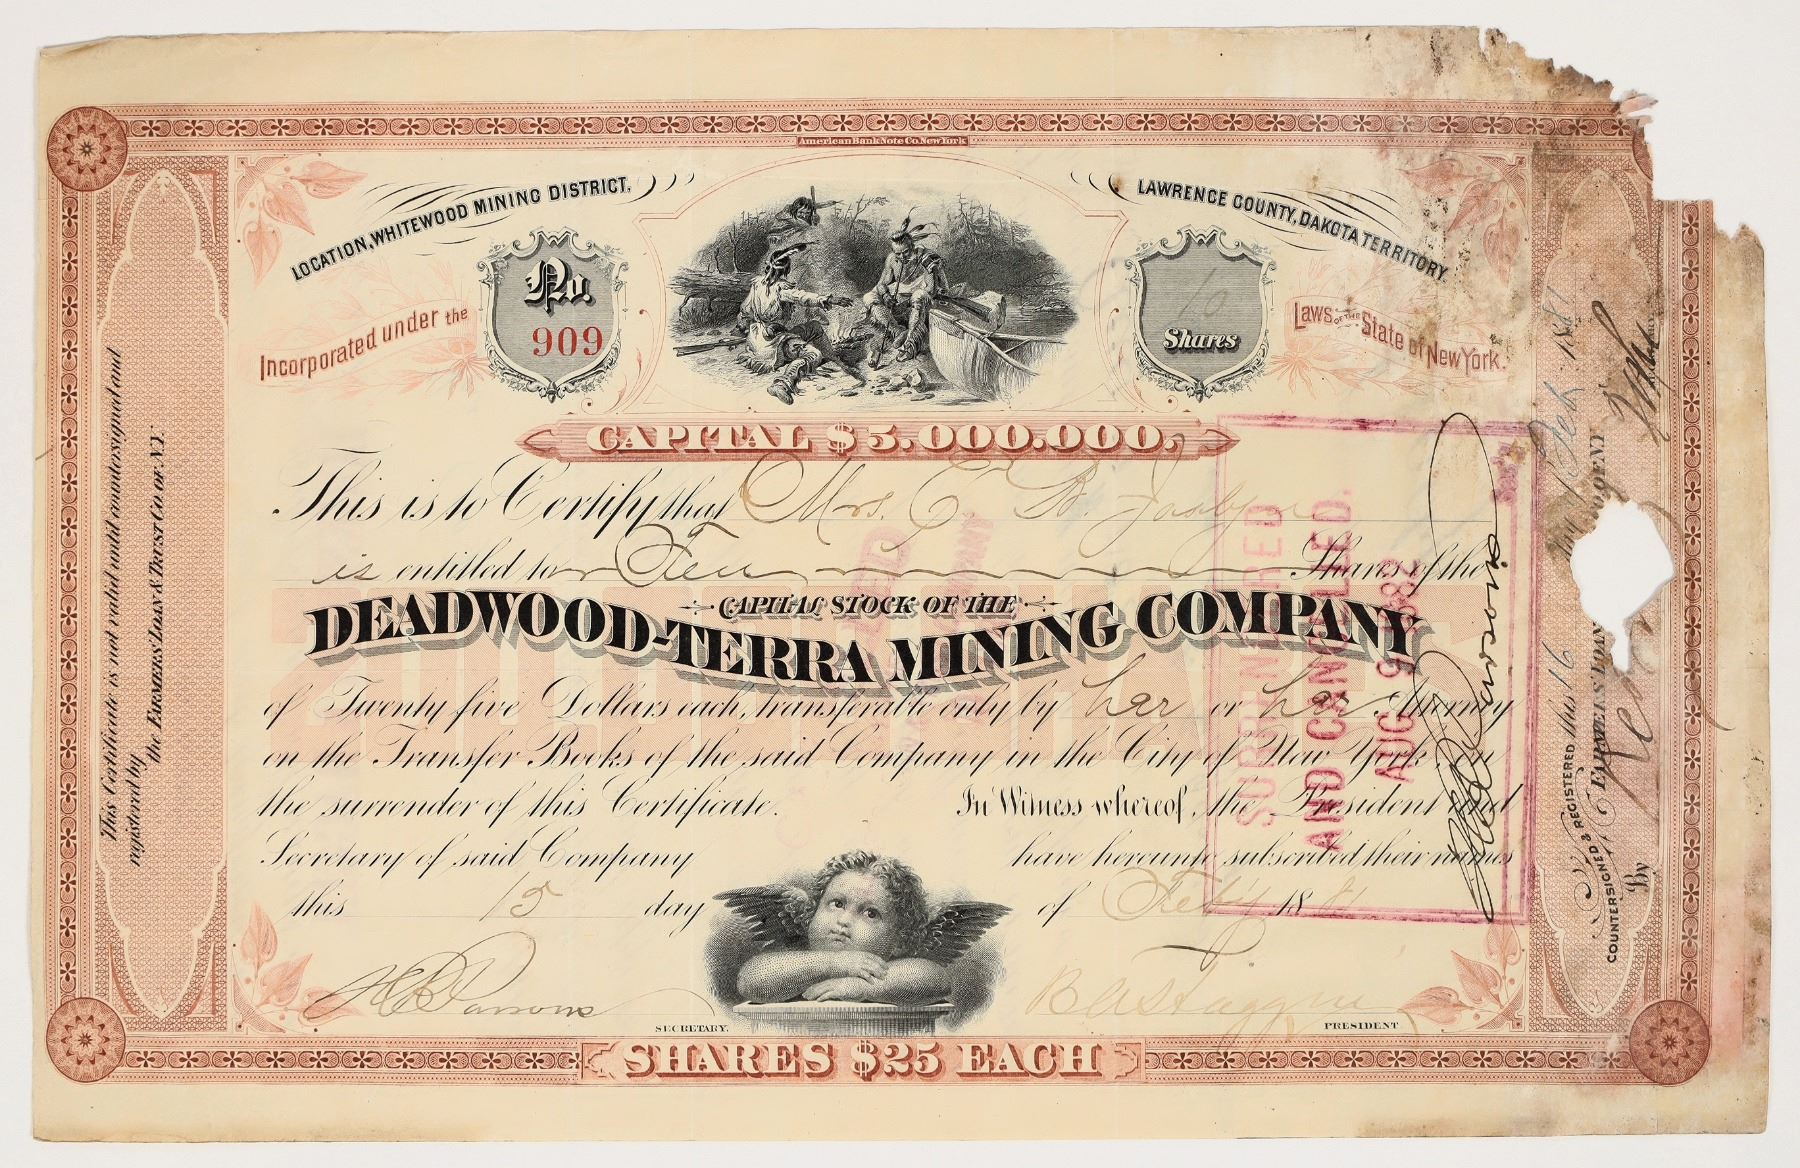 American Bank Note Co. New York
LOCATION, WHITEWOOD MINING DISTRICT,
LAWRENCE COUNTY, DAKOTA TERRITORY.
Incorporated under the
No.
909
10
Shares
Laws of the State of New York.
CAPITAL $5.000.000.
This is to Certify that Mrs. C. B.
is entitled to Ten Shares of the
CAPITAL STOCK OF THE
DEADWOOD-TERRA MINING COMPANY
200.000 SHARES
of Twenty five Dollars each, transferable only by her or her Attorney
on the Transfer Books of the said Company in the City of New York on
the surrender of this Certificate. In Witness whereof, the President and
Secretary of said Company have hereunto subscribed their names
this 15 day of Feb'y 1881
H B Parsons
SECRETARY.
PRESIDENT
SHARES $25 EACH
This Certificate is not valid until countersigned and
registered by the FARMERS' LOAN & TRUST CO. OF N.Y.
SURRENDERED
AND CANCELLED.
AUG 9 1882
H B Parsons
COUNTERSIGNED & REGISTERED this 16 day of Feb 1881
FARMERS' LOAN Co. OF N.Y.
By